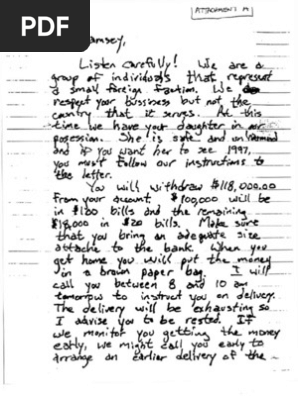 PDF
ATTACHMENT A
Ramsey,
Listen Carefully! We are a
group of individuals that represent
a small foreign faction. We do
respect your bussiness but not the
country that it serves. At this
time we have your daughter in our
posession. She is safe and unharmed
and if you want her to see 1997,
you must follow our instructions to
the letter.
You will withdraw $118,000.00
from your account. $100,000 will be
in $100 bills and the remaining
$18,000 in $20 bills. Make sure
that you bring an adequate size
attache to the bank. When you
get home you will put the money
in a brown paper bag. I will
call you between 8 and 10 am
tomorrow to instruct you on delivery.
The delivery will be exhausting so
I advise you to be rested. If
we monitor you getting the money
early, we might call you early to
arrange an earlier delivery of the